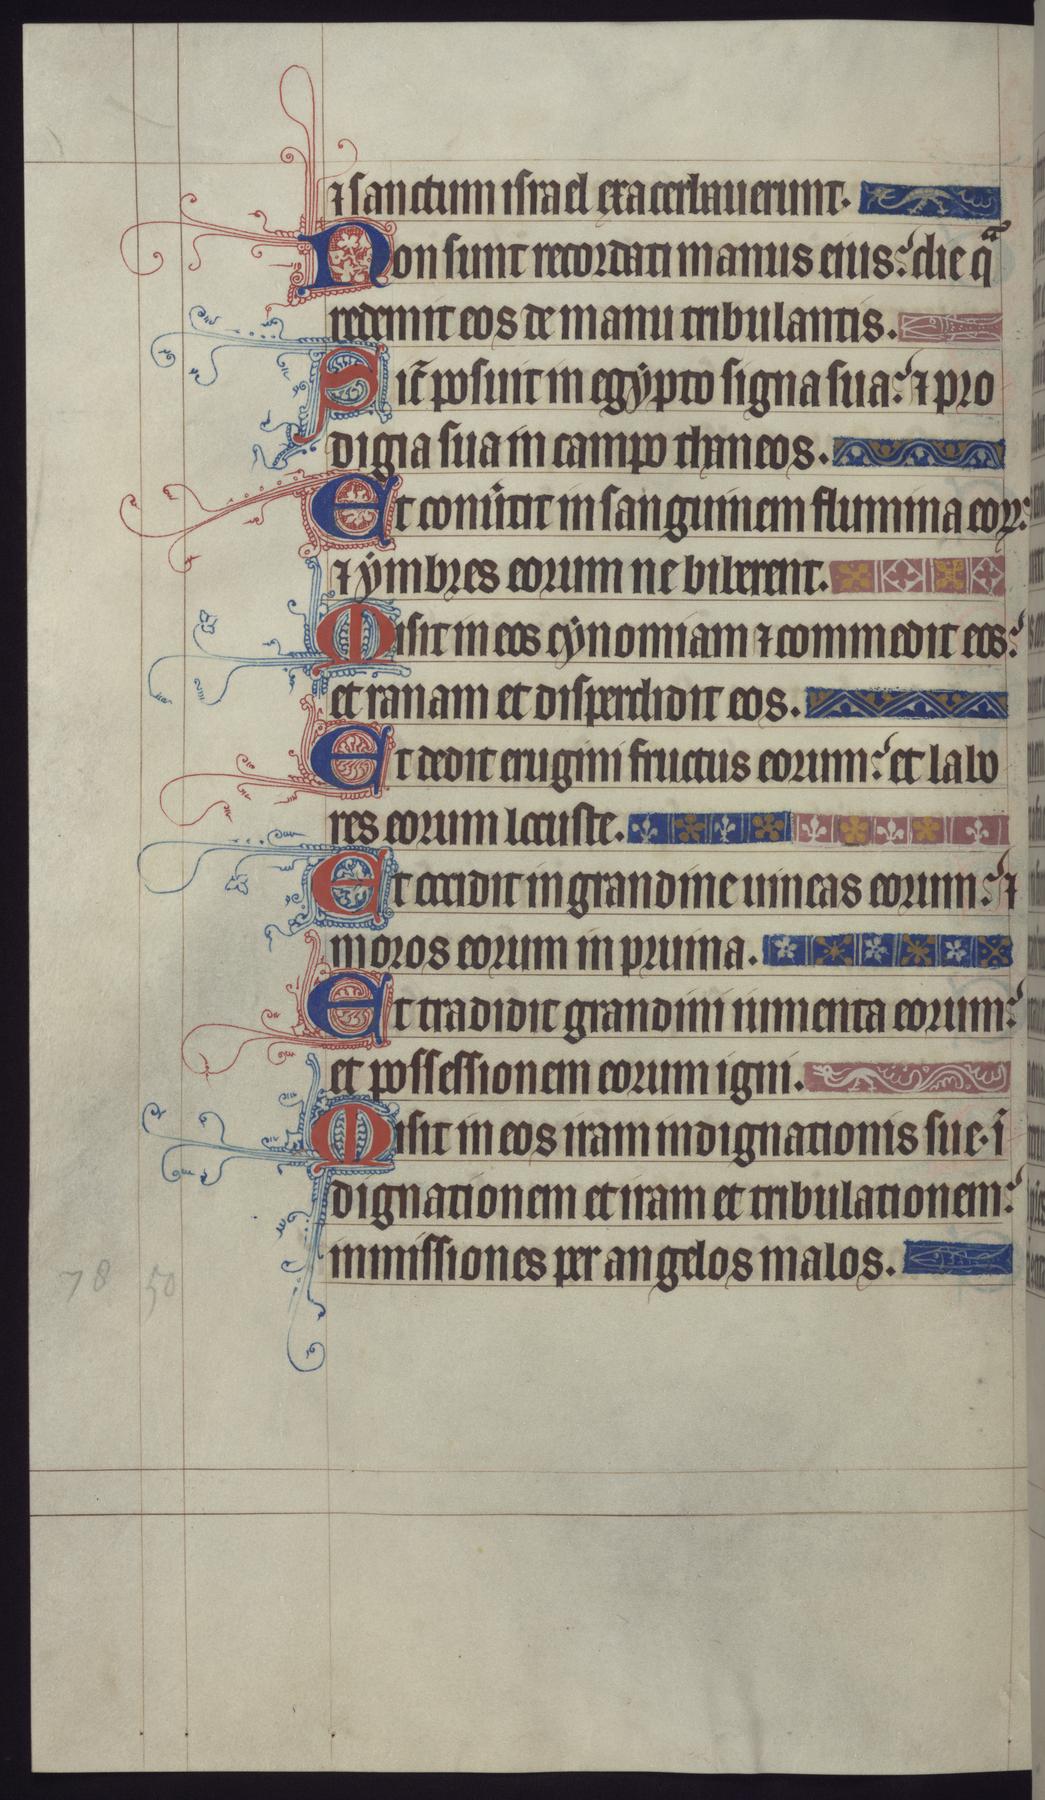 ⁊ sanctum israel exacerbauerunt.
Non sunt recordati manus eius: die qᵃ
redemit eos de manu tribulantis.
Sic̄ posuit in egẏpto signa sua: ⁊ pro
digia sua in campo thaneos.
Et conu̾tit in sanguinem flumina eoꝝ:
⁊ ẏmbres eorum ne biberent.
Misit in eos cẏnomiam ⁊ commedit eos:
et ranam et disperdidit eos.
Et dedit erugini fructus eorum: et labo
res eorum locuste.
Et occidit in grandine uineas eorum: ⁊
moros eorum in pruina.
Et tradidit grandini iumenta eorum:
et possessionem eorum igni.
Misit in eos iram indignationis sue. ī
dignationem et iram et tribulationem:
inmissiones per angelos malos.
78 50